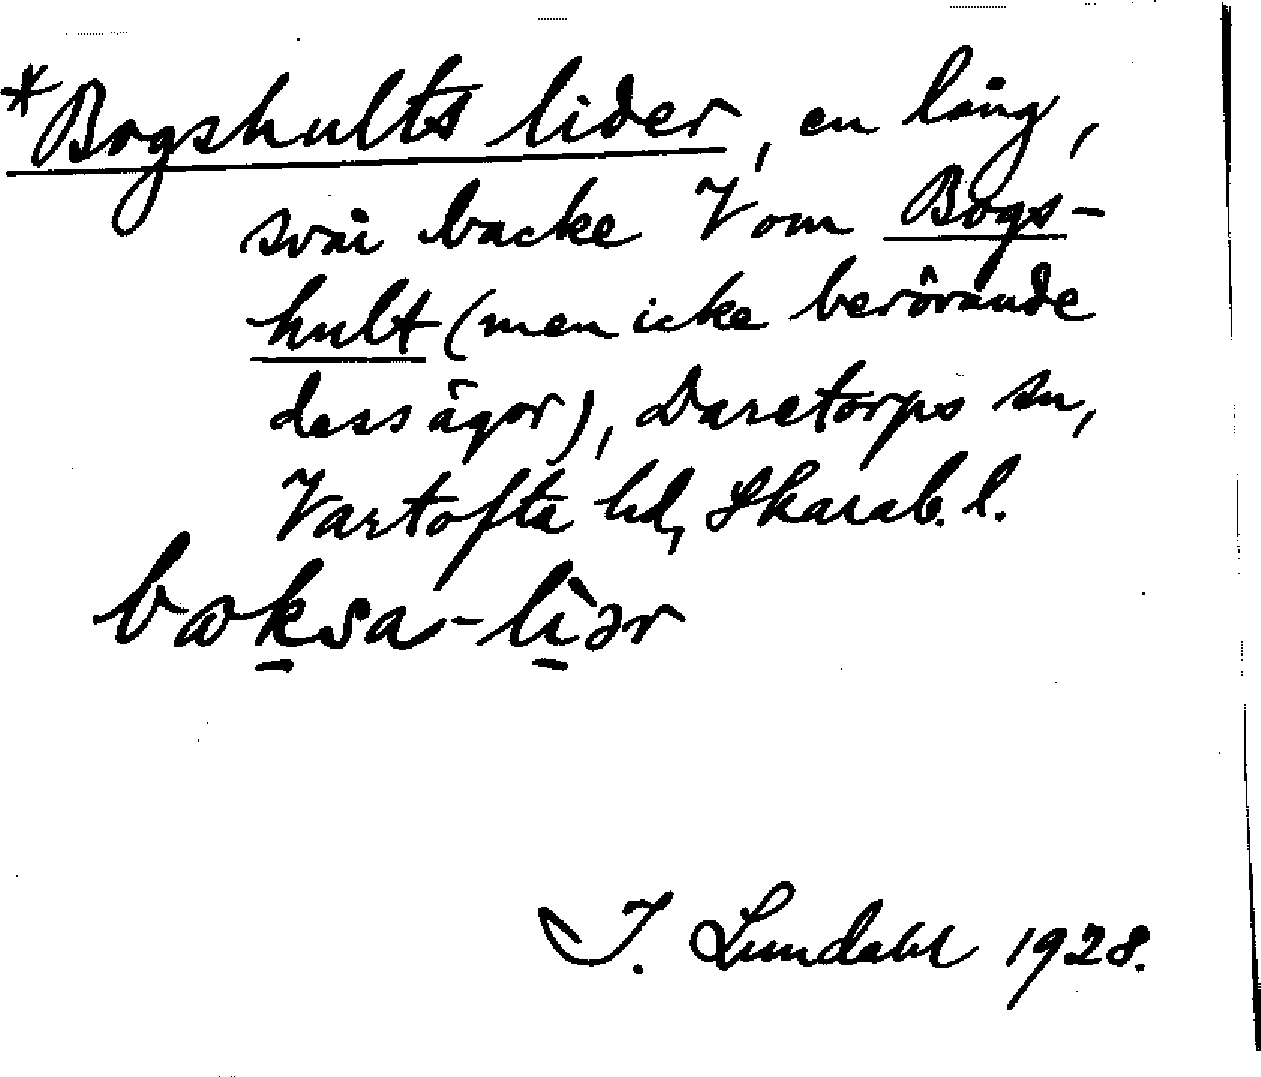 *Bogshults lider, en lång,
svår backe V om Bogs-
hult (men icke berörande
dess ägor), Daretorps sn,
Vartofta hd, Skarab. l.
bœksa-lìər
I. Lundahl 1928.